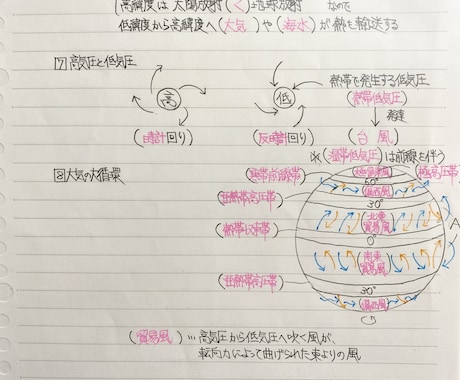 高緯度は 太陽放射(<)地球放射 なので
低緯度から高緯度へ(大気)や(海水)が熱を輸送する
[7]高気圧と低気圧
高
低
熱帯で発生する低気圧
(熱帯低気圧)
発達
(時計回り)
(反時計回り)
(台風)
※(温帯低気圧)は前線を伴う
[8]大気の大循環
(寒帯前線帯)
(極偏東風)
(極高圧帯)
60°
(偏西風)
(亜熱帯高圧帯)
30°
(北東貿易風)
(熱帯収束帯)
0°
(南東貿易風)
(亜熱帯高圧帯)
30°
(偏西風)
(貿易風)…高気圧から低気圧へ吹く風が、
転向力によって曲げられた東よりの風